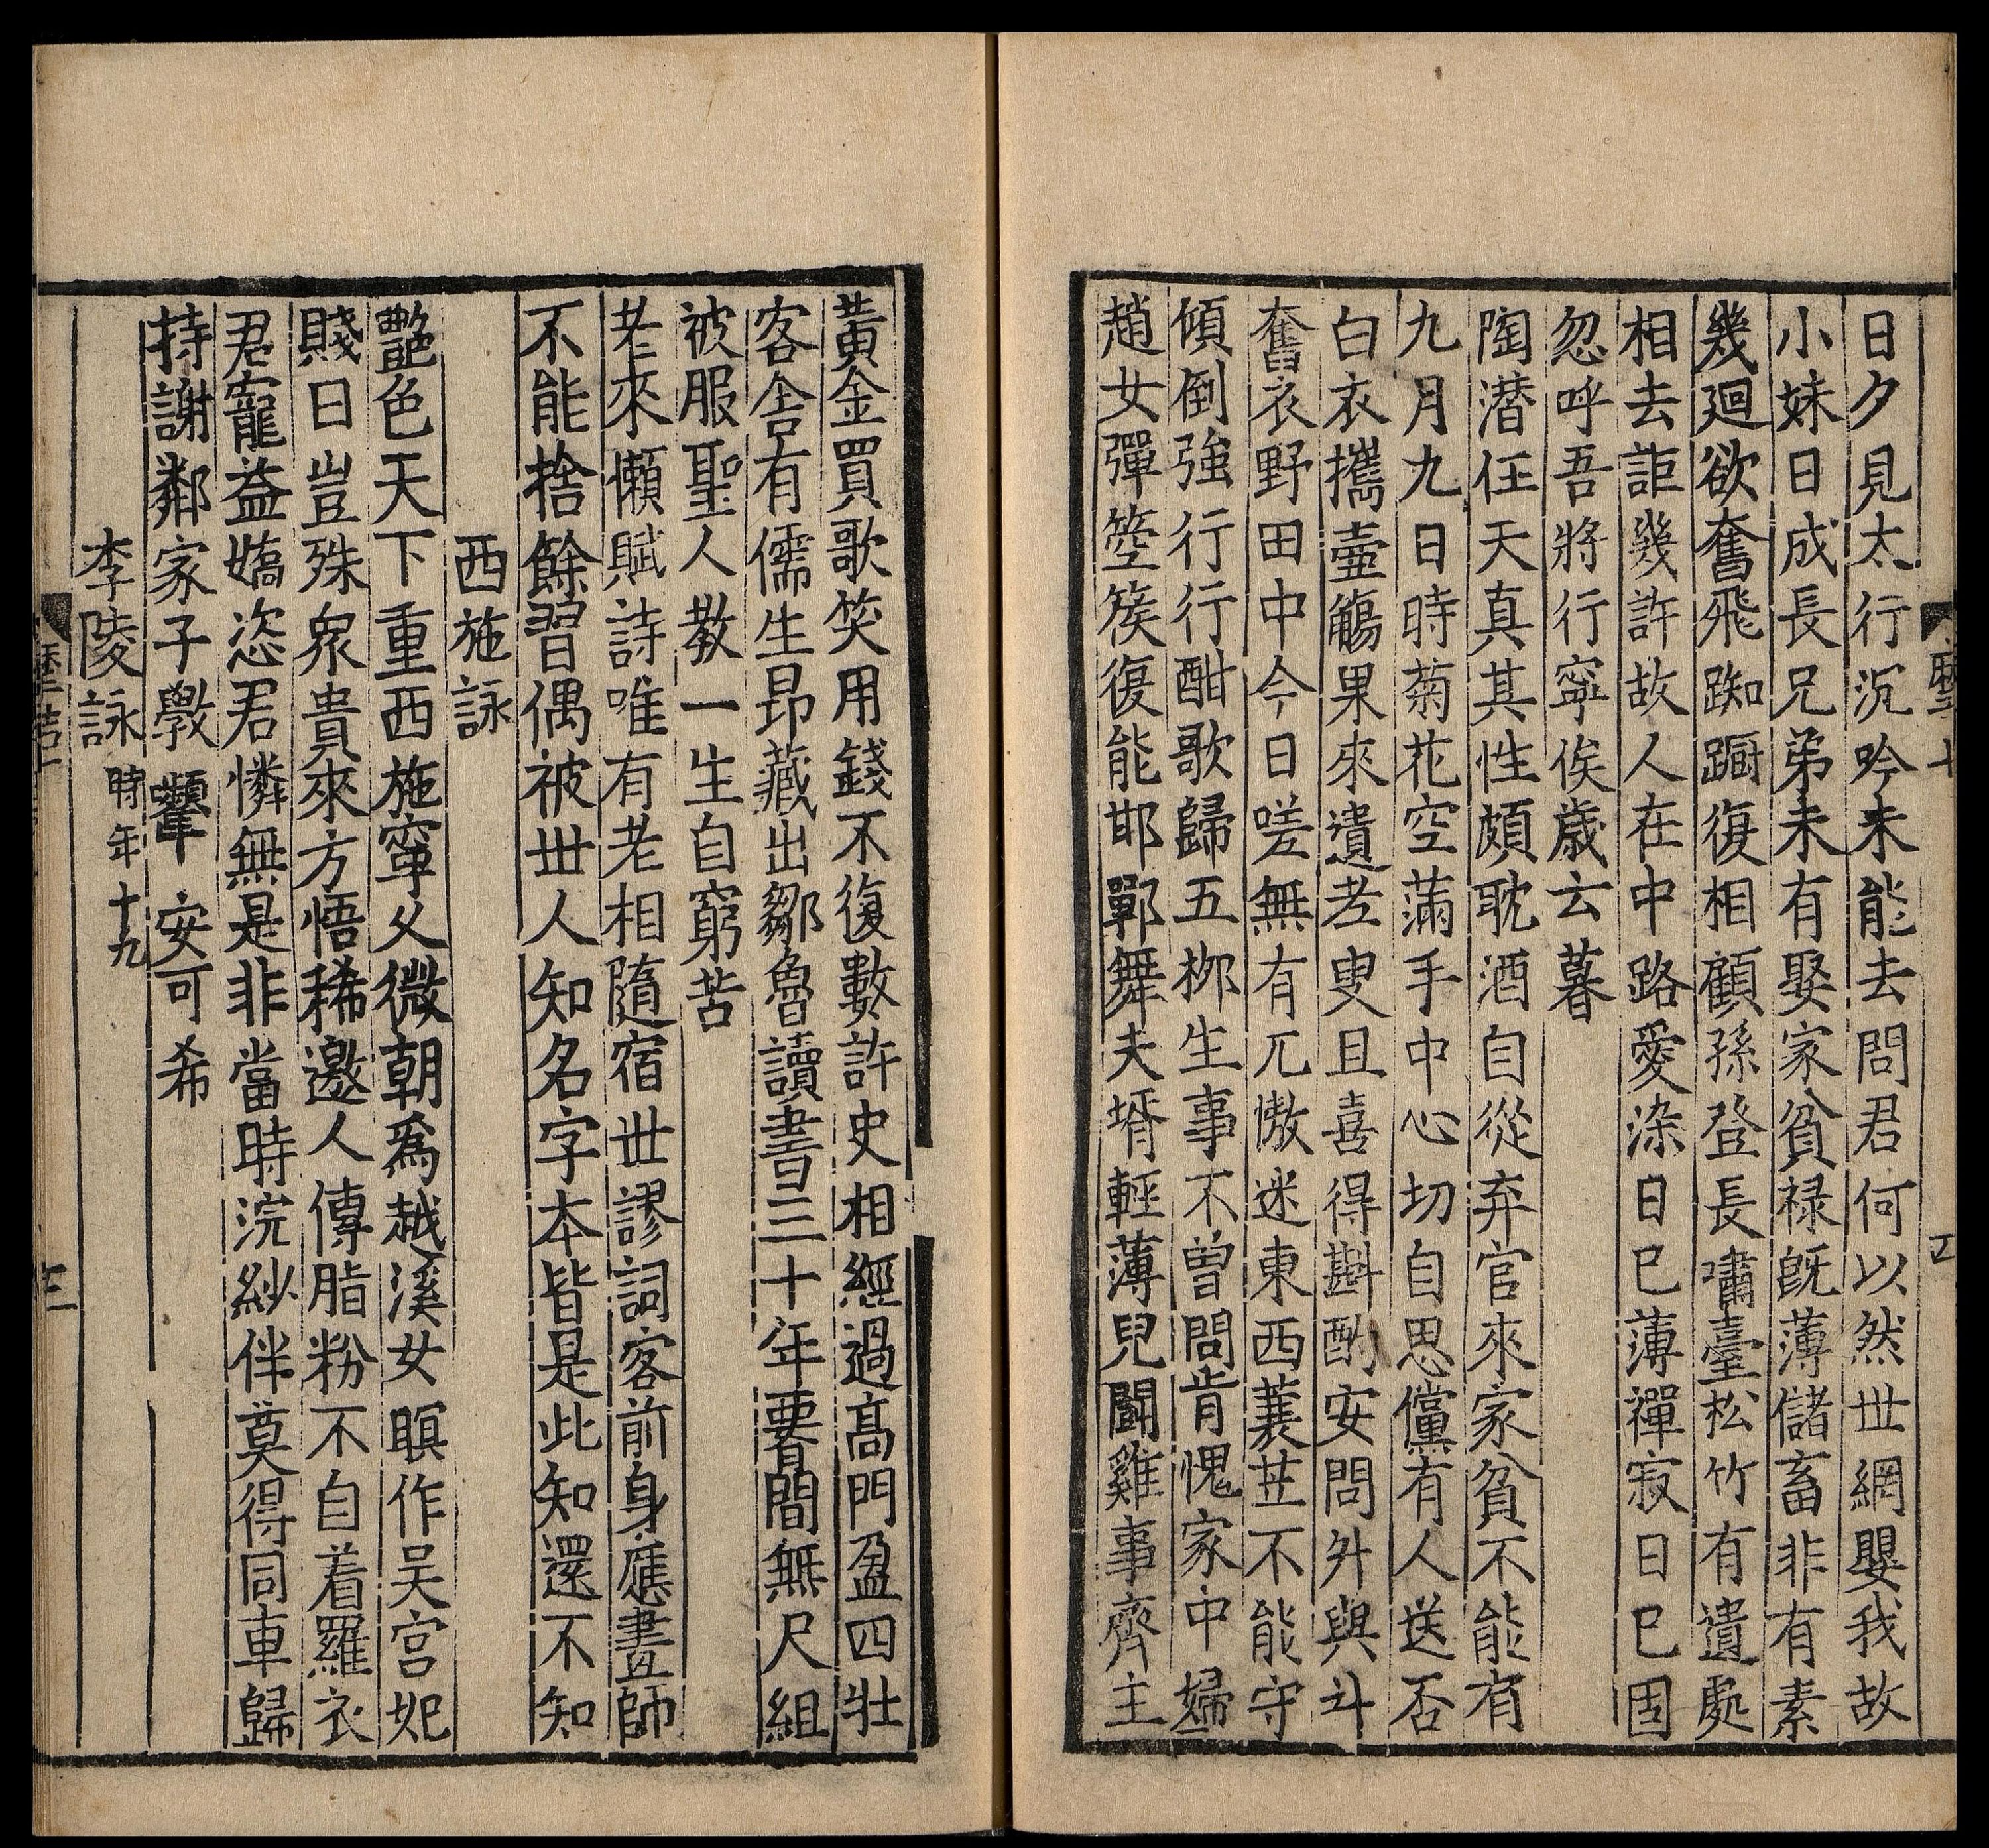 日夕見太行沉吟未能去問君何以然世網嬰我故
小妹日成長兄弟未有娶家貧祿既薄儲畜非有素
幾迴欲奮飛踟蹰復相顧孫登長嘯臺松竹有遺處
相去詎幾許故人在中路愛染日已薄禪寂日已固
忽呼吾將行寧俟歲云暮
陶潛任天真其性頗耽酒自從弃官來家貧不能有
九月九日時菊花空滿手中心切自思儻有人送否
白衣攜壷觴果來遺老叟且喜得斟酌安問升與斗
奮衣野田中今日嗟無有兀慠迷東西蓑苙不能守
傾倒強行行酣歌歸五栁生事不曽問肯愧家中婦
趙女彈箜篌復能邯鄲舞夫壻輕薄兒鬭雞事齊主
黃金買歌笑用錢不復數許史相經過髙門盈四牡
客舍有儒生昂藏出鄒魯讀書三十年要間無尺組
被服聖人教一生自窮苦
老來懶賦詩唯有老相隨宿世謬詞客前身應畫師
不能捨餘習偶被世人知名字本皆是此知還不知
西施詠
艷色天下重西施寜乆微朝爲越溪女暝作吴宫妃
賤日豈殊衆貴來方悟稀邀人傳脂粉不自着羅衣
君寵益嬌恣君憐無是非當時浣紗伴莫得同車歸
持謝鄰家子斅顰安可希
李陵詠 時年十九